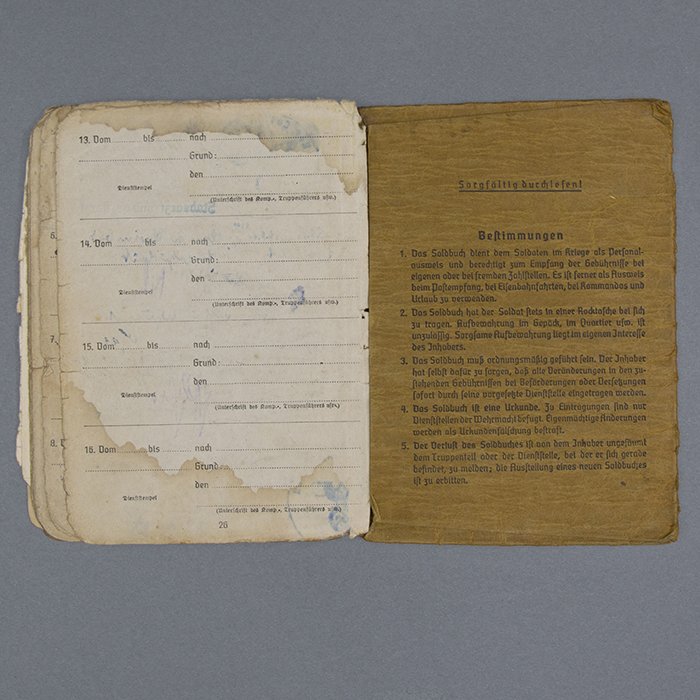 13. Vom ........ bis ........ nach
Grund:
den
Dienststempel
(Unterschrift des Komp.-, Truppenführers usw.)
14. Vom ........ bis ........ nach
Grund:
den
Dienststempel
(Unterschrift des Komp.-, Truppenführers usw.)
15. Vom ........ bis ........ nach
Grund:
den
Dienststempel
(Unterschrift des Komp.-, Truppenführers usw.)
16. Vom ........ bis ........ nach
Grund
den
Dienststempel
(Unterschrift des Komp.-, Truppenführers usw.)
26
5.
7.
8.
Sorgfältig durchlesen!
Bestimmungen
1. Das Soldbuch dient dem Soldaten im Kriege als Personal-
ausweis und berechtigt zum Empfang der Gebührnisse bei
eigenen oder bei fremden Zahlstellen. Es ist ferner als Ausweis
beim Postempfang, bei Eisenbahnfahrten, bei Kommandos und
Urlaub zu verwenden.
2. Das Soldbuch hat der Soldat stets in einer Rocktasche bei sich
zu tragen. Aufbewahrung im Gepäck, im Quartier usw. ist
unzulässig. Sorgsame Aufbewahrung liegt im eigenen Interesse
des Inhabers.
3. Das Soldbuch muß ordnungsmäßig geführt sein. Der Inhaber
hat selbst dafür zu sorgen, daß alle Veränderungen in den zu-
stehenden Gebührnissen bei Beförderungen oder Versetzungen
sofort durch seine vorgesetzte Dienststelle eingetragen werden.
4. Das Soldbuch ist eine Urkunde. Zu Eintragungen sind nur
Dienststellen der Wehrmacht befugt. Eigenmächtige Änderungen
werden als Urkundenfälschung bestraft.
5. Der Verlust des Soldbuches ist von dem Inhaber ungesäumt
dem Truppenteil oder der Dienststelle, bei der er sich gerade
befindet, zu melden; die Ausstellung eines neuen Soldbuches
ist zu erbitten.